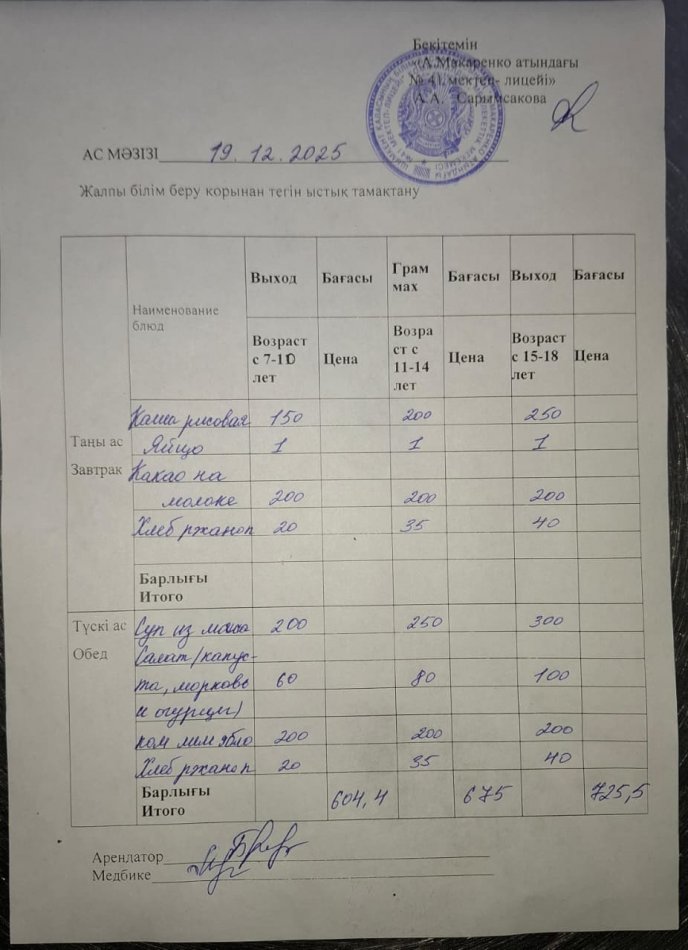 Бекітемін
«А.Макаренко атындағы
№ 41 мектеп- лицейі»
А.А. Сарымсакова
АС МӘЗІЗІ 19.12.2025
Жалпы білім беру қорынан тегін ыстық тамақтану
Наименование блюд Выход Бағасы Грам мах Бағасы Выход Бағасы
Возраст с 7-10 лет Цена Возра ст с 11-14 лет Цена Возраст с 15-18 лет Цена
Таңы ас
Завтрак
Каша рисовая 150 200 250
Яйцо 1 1 1
Какао на
молоке 200 200 200
Хлеб ржаной 20 35 40
Барлығы
Итого
Түскі ас
Обед
Суп из маша 200 250 300
Салат (капус-
та, морковь 60 80 100
и огурцы)
ком лим ябло 200 200 200
Хлеб ржаной 20 35 40
Барлығы
Итого 604,4 675 725,5
Арендатор
Медбике